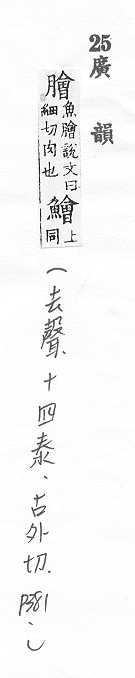 25廣韻
膾魚膾說文曰細切肉也鱠上同
(去聲.十四泰.古外切.P381.)